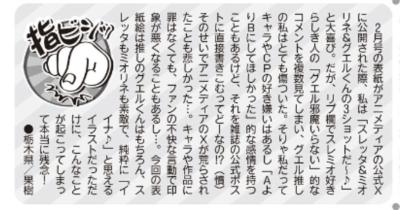 2月号の表紙がアニメディアの公式X
に公開された際、私は「スレッタ&ミオ
リネ&グエルくんの3ショットだ〜♪」
と大喜び。だが、リプ欄でスレミオ好き
らしき人の「グエル邪魔いらない」的な
コメントを複数見てしまい、グエル推し
の私はとても傷ついた。そりゃ私だって
キャラやCPの好き嫌いはあるし「Aよ
りBにしてほしかった」的な感情を持つ
こともあるけど、それを雑誌の公式ポス
トに直接書きこむってどーなの!?(憤)
そのせいでアニメディアのXが荒らされ
たことも悲しかった…。キャラや作品に
罪はなくても、ファンの不快な言動で印
象が悪くなることもあるし…。今回の表
紙絵は推しのグエルくんはもちろん、ス
レッタもミオリネも素敵で、純粋に「イ
イナ♪」と思える
イラストだっただ
けに、こんなこと
が起こってしまっ
て本当に残念!
●栃木県/果樹
指ビシッ!!